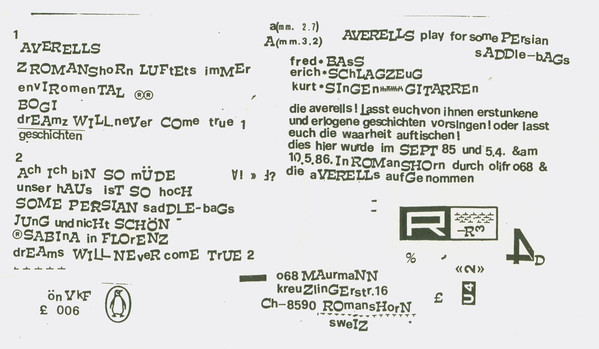 1
AVERELLS
ZROMANShoRn LUFtEts imMEr
envIRomenTAL ®®
BOGI
drEAmz WILL neVer COme true 1
geschichten
2
Ach Ich biN SO mÜDE
unser hAUs isT SO hocH
SOME PERSIAN sadDLE-baGs
JUnG und nicHt SCHÖN
®SABInA in FLOrENZ
drEAms WILL NEveR comE TrUE 2
ön VkF
£ 006
a(mm. 2.7)
A(mm.3.2)
AVERELLS play for some PErsian
sADDle-bAGs
fred•BAsS
erich•SCHLAGZEuG
kurt•SInGEN GITARREn
die averells! lasst euch von ihnen erstunkene
und erlogene geschichten vorsingen! oder lasst
euch die waarheit auftischen!
dies hier wurde im SEPT 85 und 5.4. &am
10.5.86. In ROManSHOrn durch olifr o68 &
die aVERELLs aufGenommen
∀! » ⅎ?
R
-R3
4D
%
«2»
U4
£
o68 MAurmaNN
kreuZlinGErstr.16
Ch-8590 ROmansHorN
sweIZ